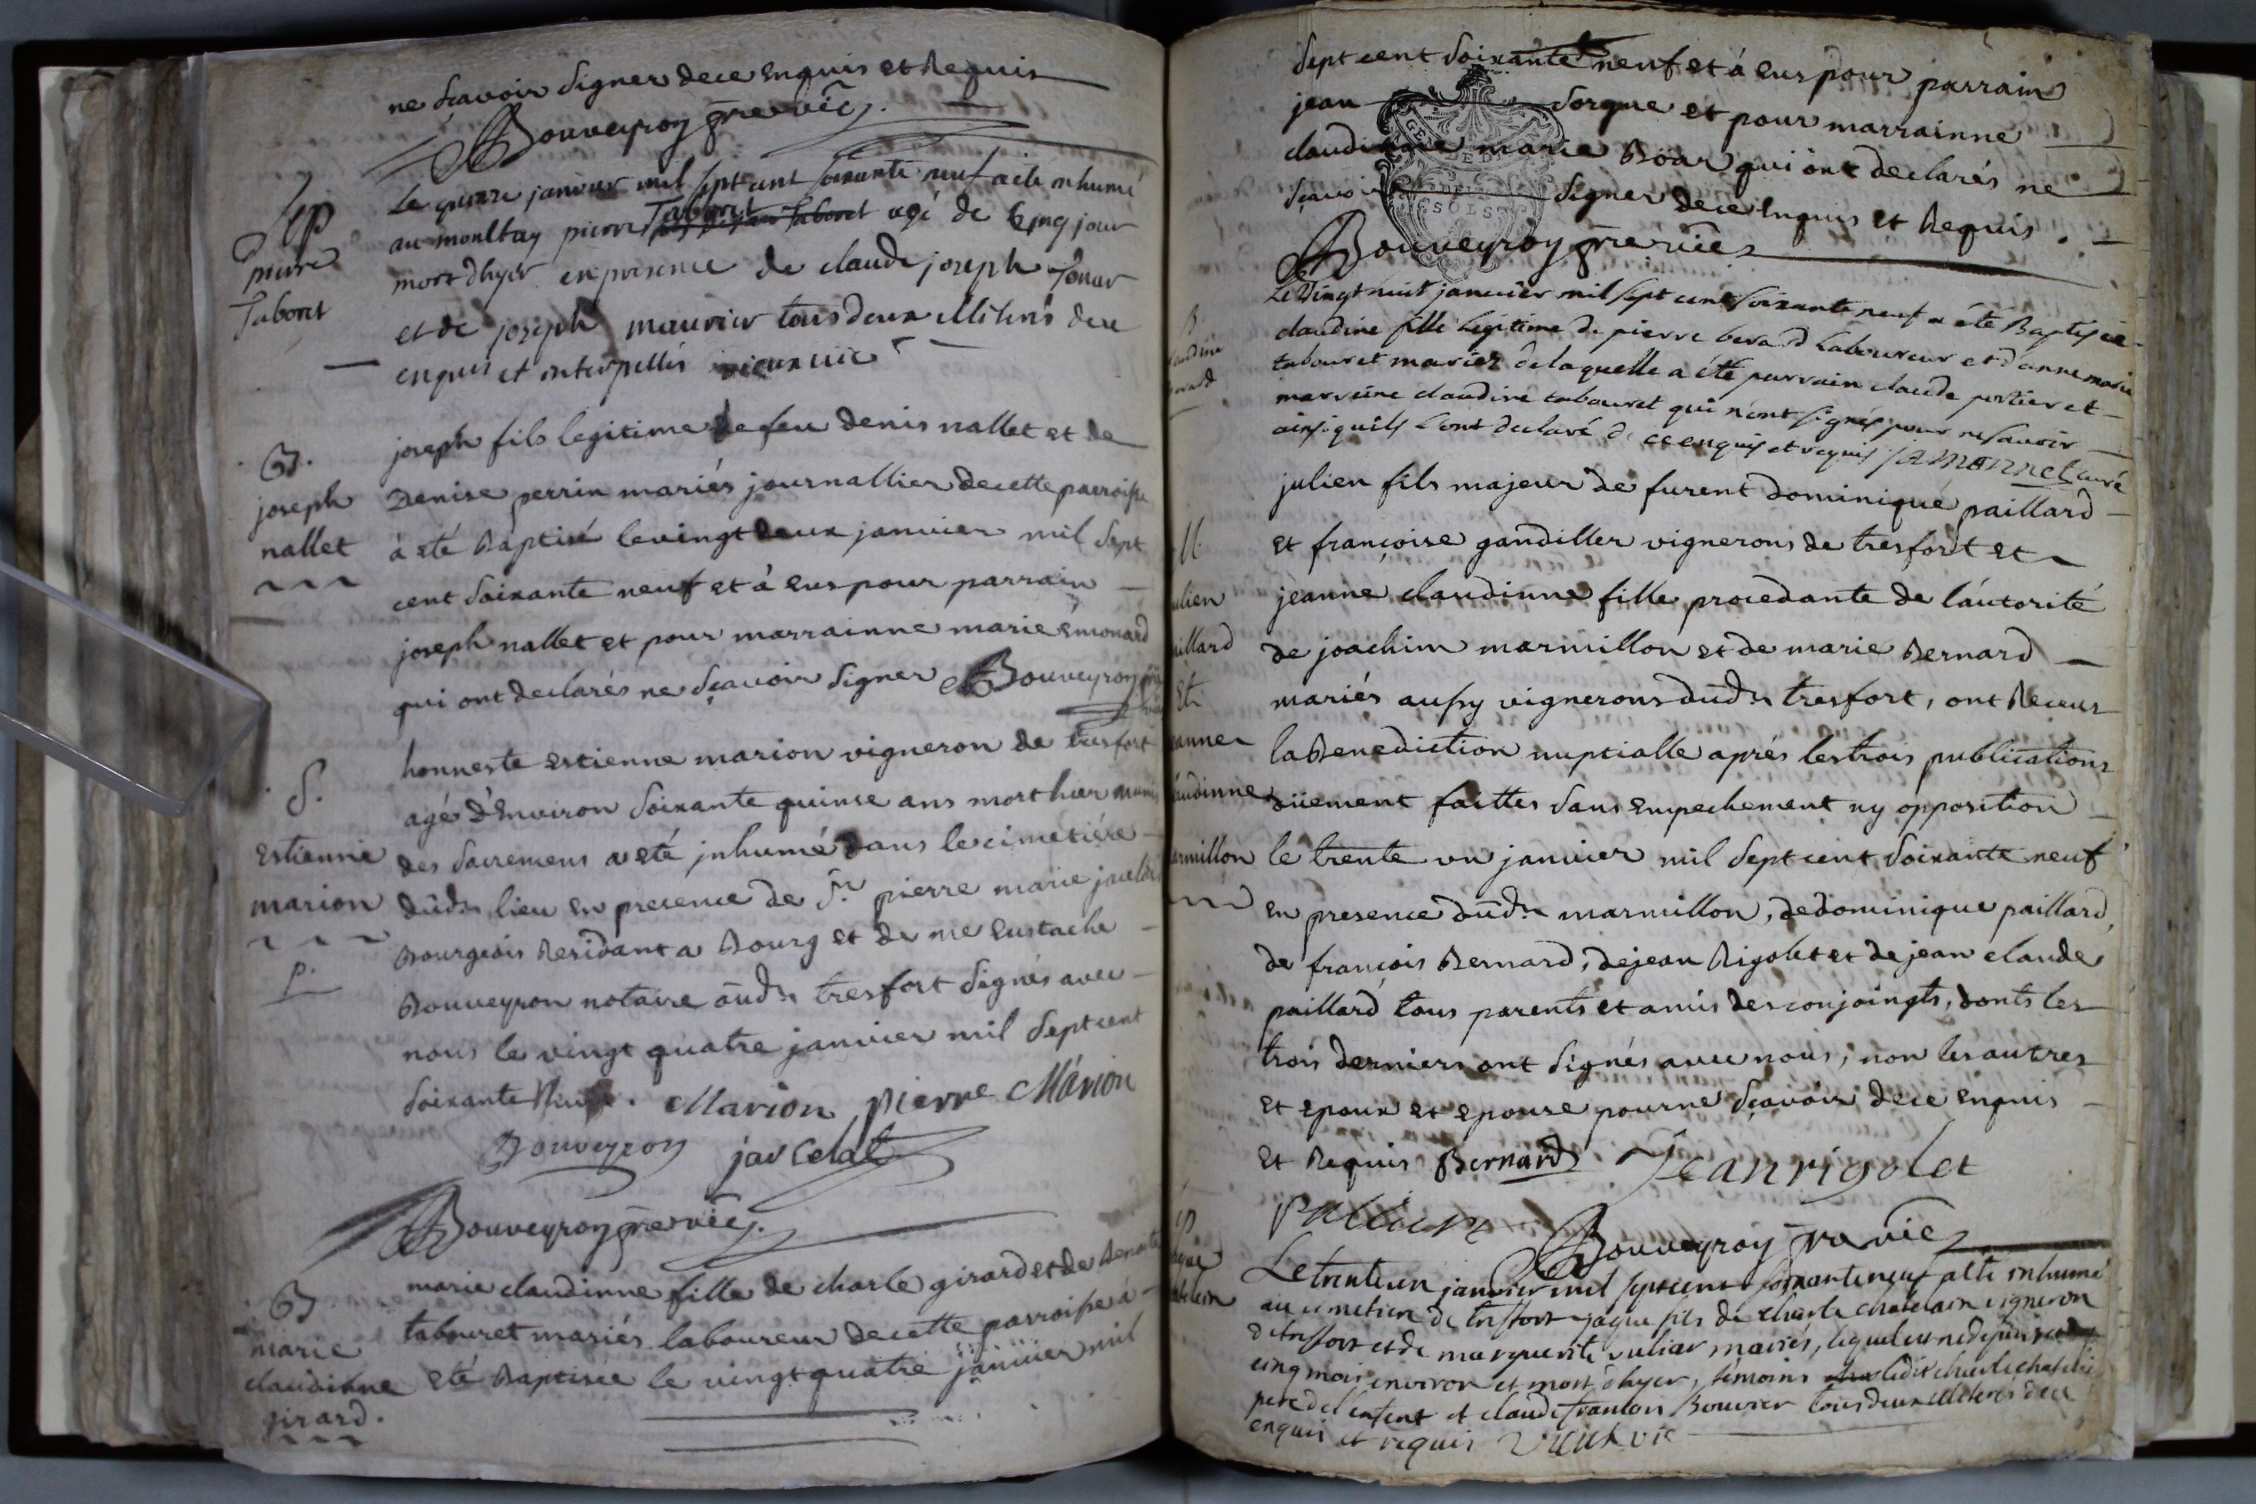 ne sçavoir signer de ce enquis et Requis
Bouveyron prê vic.
Sep
pierre
Taboret
Le quinze janvier mil sept cent soixante neuf a ete inhumé
au moultay pierre Taboret agé de Cinq jour
mort d'hyer en presence de claude joseph
et de joseph maurier tous deux illiterés de ce
enquis et interpellés vieux vic
B.
joseph
nallet
joseph fils legitime de feu denis nallet et de
Denise perrin mariés journallier de cette parroisse
à eté Baptisé le vingt deux janvier mil sept
cent soixante neuf et à eus pour parrain
joseph nallet et pour marrainne marie emonard
qui ont declarés ne sçavoir signer Bouveyron
S.
estienne
marion
p.
honneste estienne marion vigneron de tresfort
agé d'Environ soixante quinse ans mort hier munis
des sacremens a eté inhumé dans le cimetiére
dûdt lieu en precence de Sr pierre marie
Bourgeois Residant a Bourg et de me Eustache
Bouveyron notaire aûdt tresfort signés avec
nous le vingt quatre janvier mil sept cent
soixante neuf. Marion pierre Marion
Bouveyron
Bouveyron prê vic.
B
marie
claudinne
girard.
marie claudinne fille de charle girard et de Benoite
tabouret mariés laboureur de cette parroisse à
eté Baptisée le vingt quatre janvier mil
sept cent soixante neuf et à eus pour parrain
jean sorgue et pour marrainne
claudinne marie Böar qui ont declarés ne
sçavoir signer de ce enquis et Requis.
GEN
SOLS
Bouveyron prê vic
B
claudine
berard
Le vingt neuf janvier mil sept cent soixante neuf a été Baptisée
claudine fille legitime de pierre berard laboureur et d'anne marie
tabouret mariez de laquelle a été parrain claude portier et
marreine claudine tabouret qui n'ont signés pour ne savoir
ainsi qu'ils l'ont declaré de ce enquis et requis curé
M.
julien
paillard
et
jeanne
claudinne
marmillon
julien fils majeur de furent dominique paillard
et françoise gandiller vignerons de tresfort et
jeanne claudinne fille procedante de l'áutorité
de joachim marmillon et de marie Bernard
mariés aussy vignerons dudt tresfort, ont Receus
la Benediction nuptialle aprés les trois publications
düement faittes sans empechement ny opposition
le trente un janvier mil sept cent soixante neuf
en presence dûdt marmillon, de dominique paillard,
de françois Bernard, de jean Rigolet et de jean claude
paillard tous parents et amis des conjoingts, donts les
trois derniers ont signés avec nous; non les autres
et epoux et epouse pour ne sçavoir de ce enquis
et Requis Bernard Jean rigolet
Bouveyron prê vic
Le trente un janvier mil sept cent soixante neuf a eté inhumé
au cimetiere de tresfort jaque fils de charle chatelain vigneron
de tresfort et de marguerite vuliar mariés, lequel est né depuis
cinq mois environ et mort d'hyer, témoins ledit charle chatelain
pere de l'enfent et claude Bouvier tous deux illiterés de ce
enquis et requis vieux vic